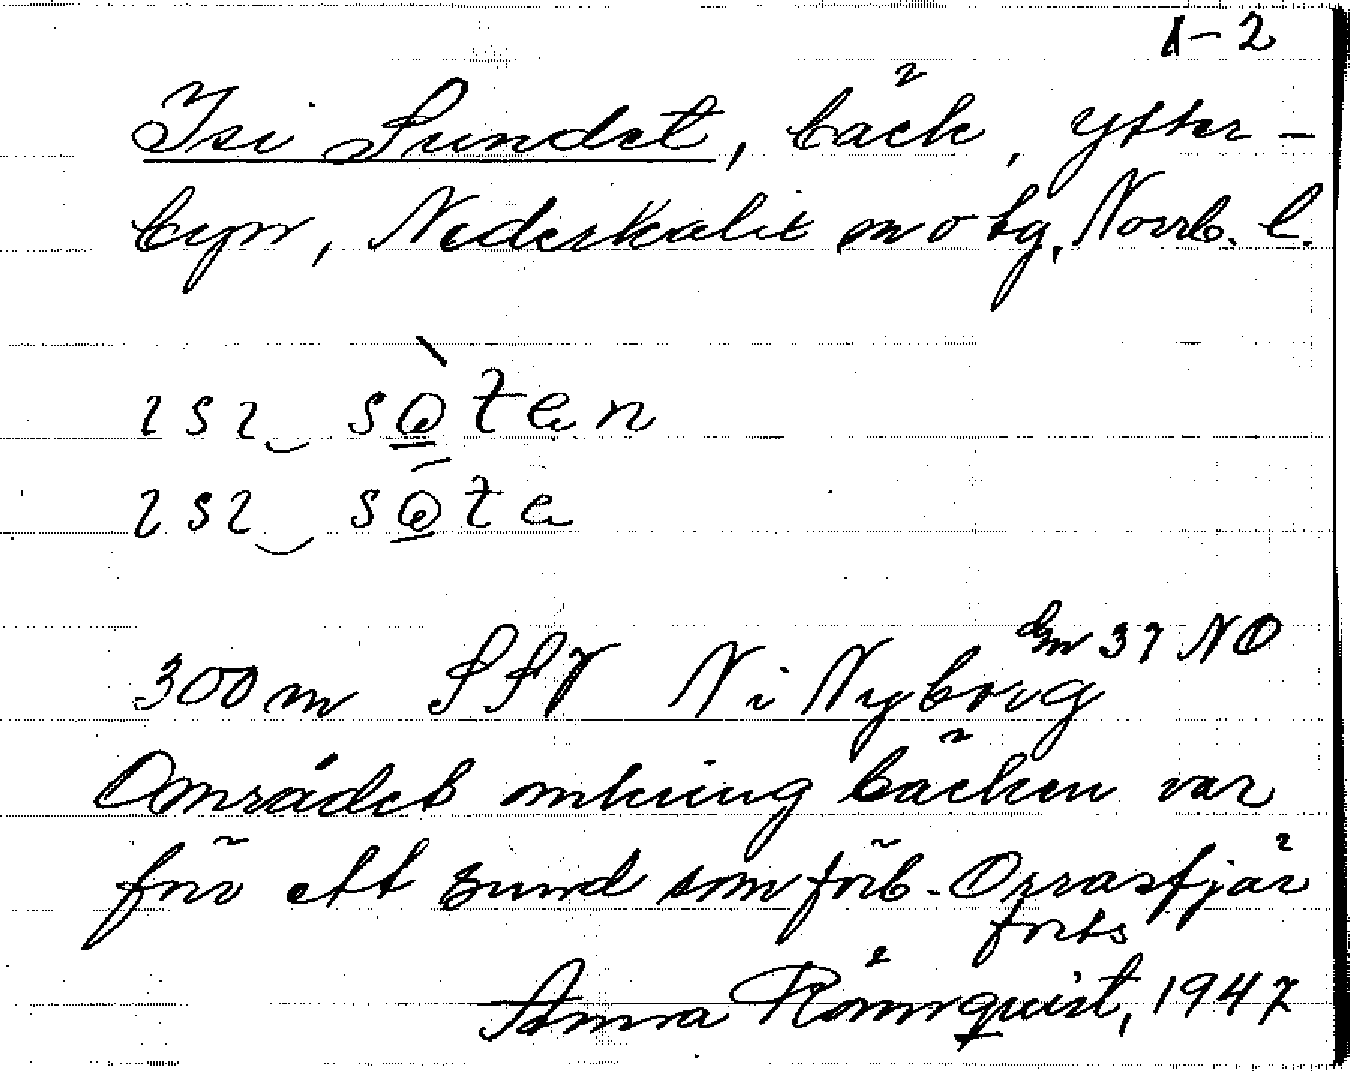 1-2
Isi Sundet, bäck, Ytter-
byn, Nederkalix sn o tg, Norrb. l.
ısı sɷ̀ten
ısı sɷte
Gm 37 NO
300 m SSV N i Nyborg
Området omkring bäcken var
förr ett sund som förb. Orrasfjär
forts
Anna Rönnquist, 1947